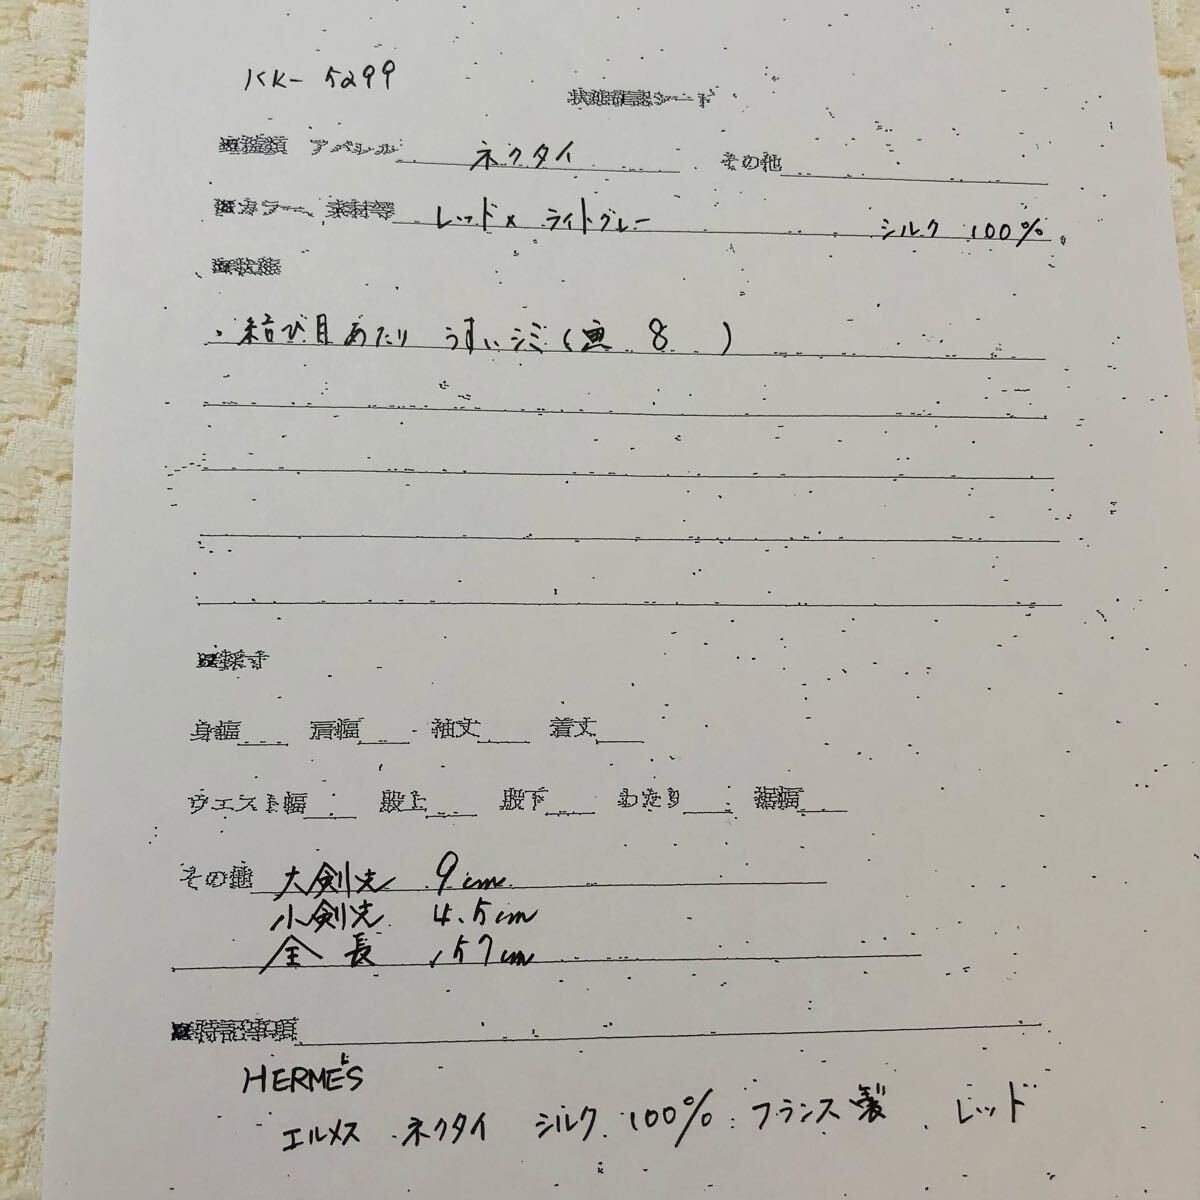 KK-5299
状態確認シート
■種類 アパレル ネクタイ その他
■カラー、素材等 レッド×ライトグレー シルク 100%
■状態
・結び目あたり うすいシミ(画 8 )
■採寸
身幅 肩幅 袖丈 着丈
ウエスト幅 股上 股下 わたり 裾幅
その他 大剣先 9cm
小剣先 4.5cm
全長 157cm
■特記事項
HERMÈS
エルメス ネクタイ シルク 100% フランス製 レッド